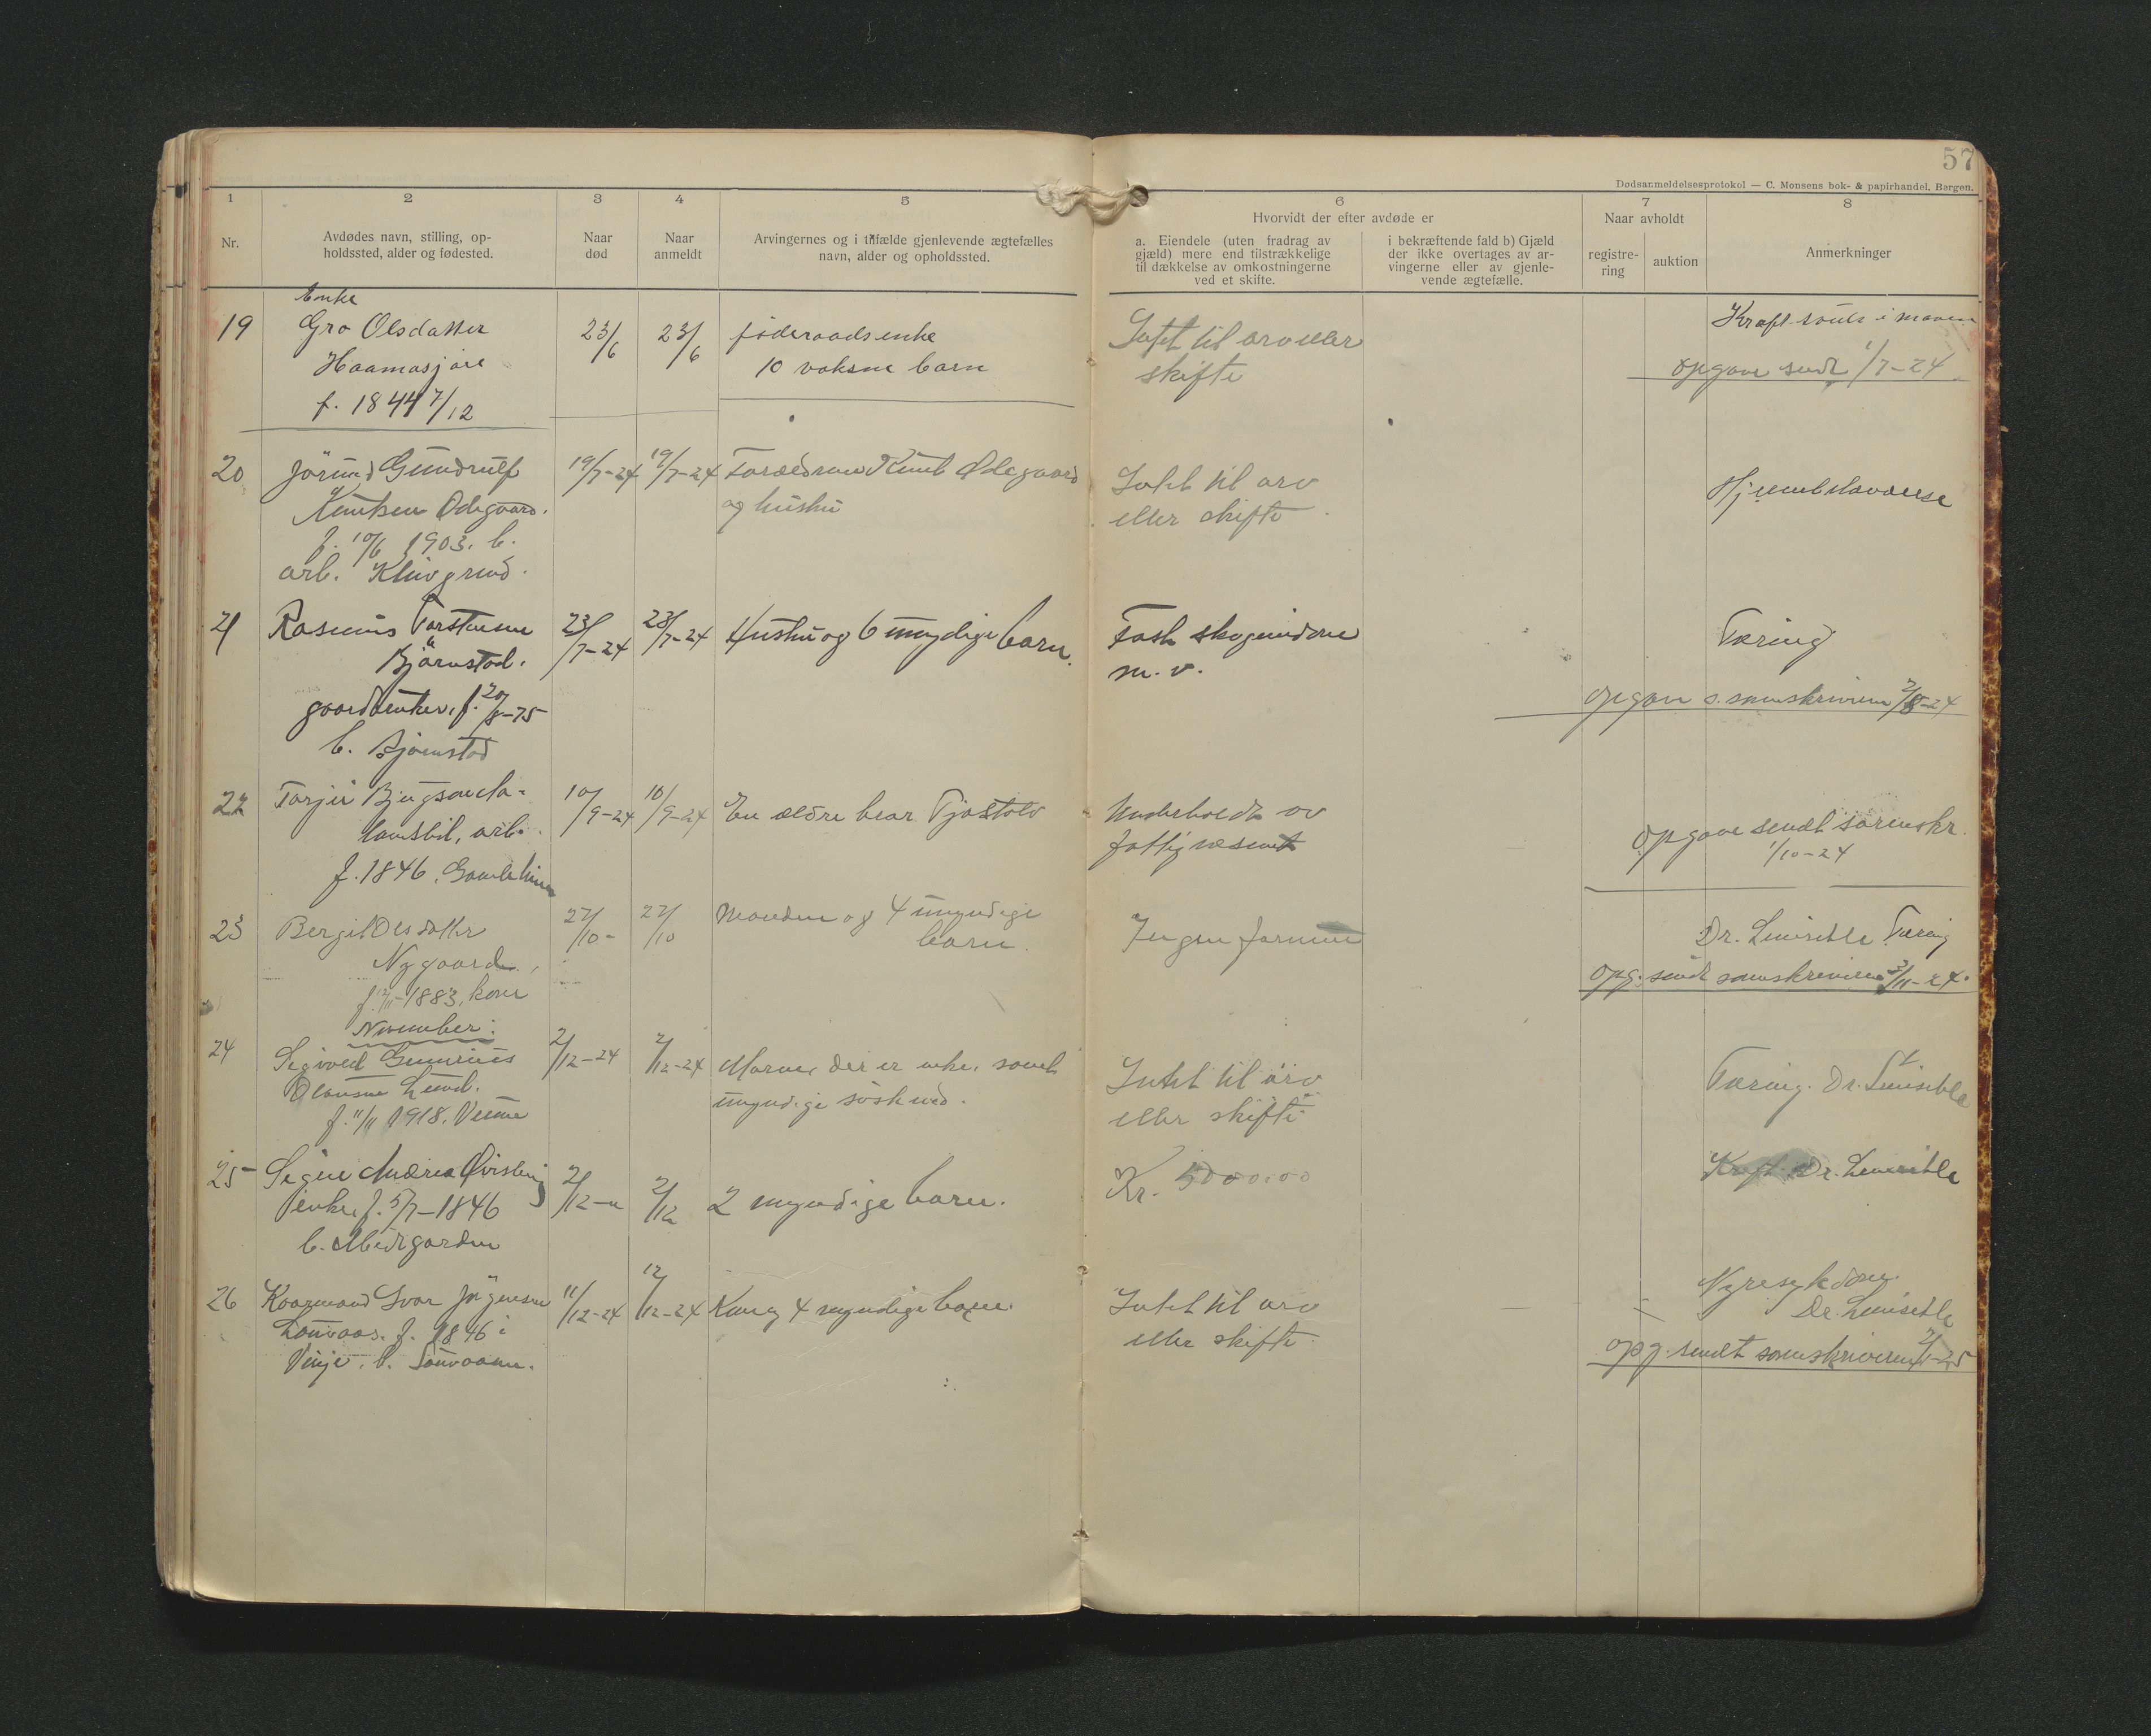 57
Dødsanmeldelsesprotokol — C. Monsens bok- & papirhandel, Bergen.
1
2
3
4
5
6
7
8
Nr.
Avdødes navn, stilling, op-
holdssted, alder og fødested.
Naar
død
Naar
anmeldt
Arvingernes og i tilfælde gjenlevende ægtefælles
navn, alder og opholdssted.
Hvorvidt der efter avdøde er
a. Eiendele (uten fradrag av
gjæld) mere end tilstrækkelige
til dækkelse av omkostningerne
ved et skifte.
i bekræftende fald b) Gjæld
der ikke overtages av ar-
vingerne eller av gjenle-
vende ægtefælle.
Naar avholdt
registre-
ring
auktion
Anmerkninger
19
Enke
Gro Olsdatter
f. 1844 7/12
23/6
23/6
føderaadsenke
10 voksne barn
Intet til arv eller
skifte
Kraft i maven
opgave sendt 1/7-24
20
Jörund Gundrulf
Knutsen Ödegaard.
f. 10/6 1903. b.
arb.
19/7-24
19/7-24
Forældrene Knut Ødegaard
og hustru
Intet til arv
eller skifte
21
Rasmus Torstensen
Björnstad.
gaardbruker, f. 20/8-75
b. Bjørnstad
23/7-24
23/7-24
Hustru og 6 umyndige barn.
Fast skogeiendom
m. v.
Tæring
opgave s. sorenskriveren 2/8-24
22
arb.
f. 1846.
10/9-24
10/9-24
En ældre bror Tjostolv
Underholdt av
fattigvæsenet
Opgave sendt sorenskr.
1/10-24
23
Bergit Olsdatter
Nygaard,
f. 12/11-1883, kone
27/10-
27/10
Manden og 4 umyndige
barn.
Ingen formue
Dr. Tæring
opg. sendt sorenskriveren 3/11-24.
November:
24
Sigvald Gunerius
Olausen Lund.
f. 11/11 1918.
2/12-24
2/12-24
Moren, der er enke, samt
umyndige søskend.
Intet til arv
eller skifte
Tæring. Dr.
25
Signe Andrea
enke, f. 5/7-1846
b. Midgarden
2/12
2/12
2 myndige barn.
Kr. 5000.00
Kræft. Dr.
26
Kaarmand Ivar Jörgensen
f. 1846 i
Vinje. b.
11/12-24
12/12-24
Kone og 4 myndige barn.
Intet til arv
eller skifte.
Nyresykdom.
Dr.
opg. sendt sorenskriveren 2/1-25